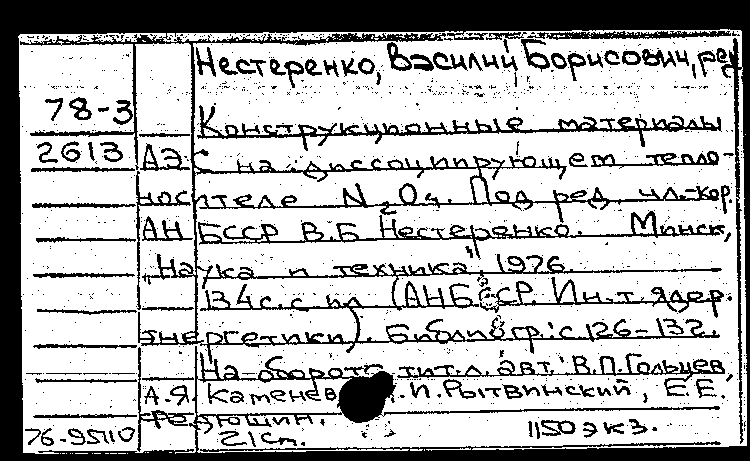 Нестеренко, Василий Борисович, ред.
78-3
Конструкционные материалы
2613 АЭС на диссоциирующем тепло-
носителе N2O4. Под ред. чл.-кор.
АН БССР В.Б Нестеренко. Минск,
"Наука и техника", 1976.
134с. с ил (АН БССР. Ин-т ядер.
энергетики). Библиогр.: с.126-132.
На обороте тит.л. авт.: В.П.Гольцев,
А.Я. Каменев .И.Рытвинский, Е.Е.
Федюшин.
76-95110 21см. 1150 экз.